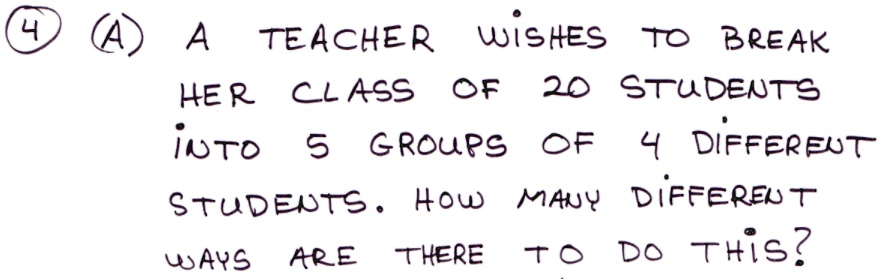 4 (A) A TEACHER WISHES TO BREAK
HER CLASS OF 20 STUDENTS
INTO 5 GROUPS OF 4 DIFFERENT
STUDENTS. HOW MANY DIFFERENT
WAYS ARE THERE TO DO THIS?